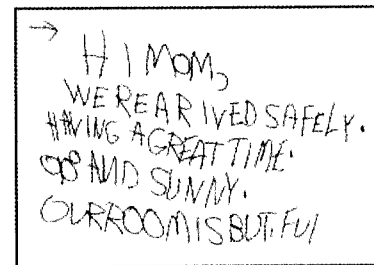 → HI MOM,
WE REARIVED SAFELY.
HAVING A GREAT TIME.
98° AND SUNNY.
OUR ROOM IS BUT.FUl